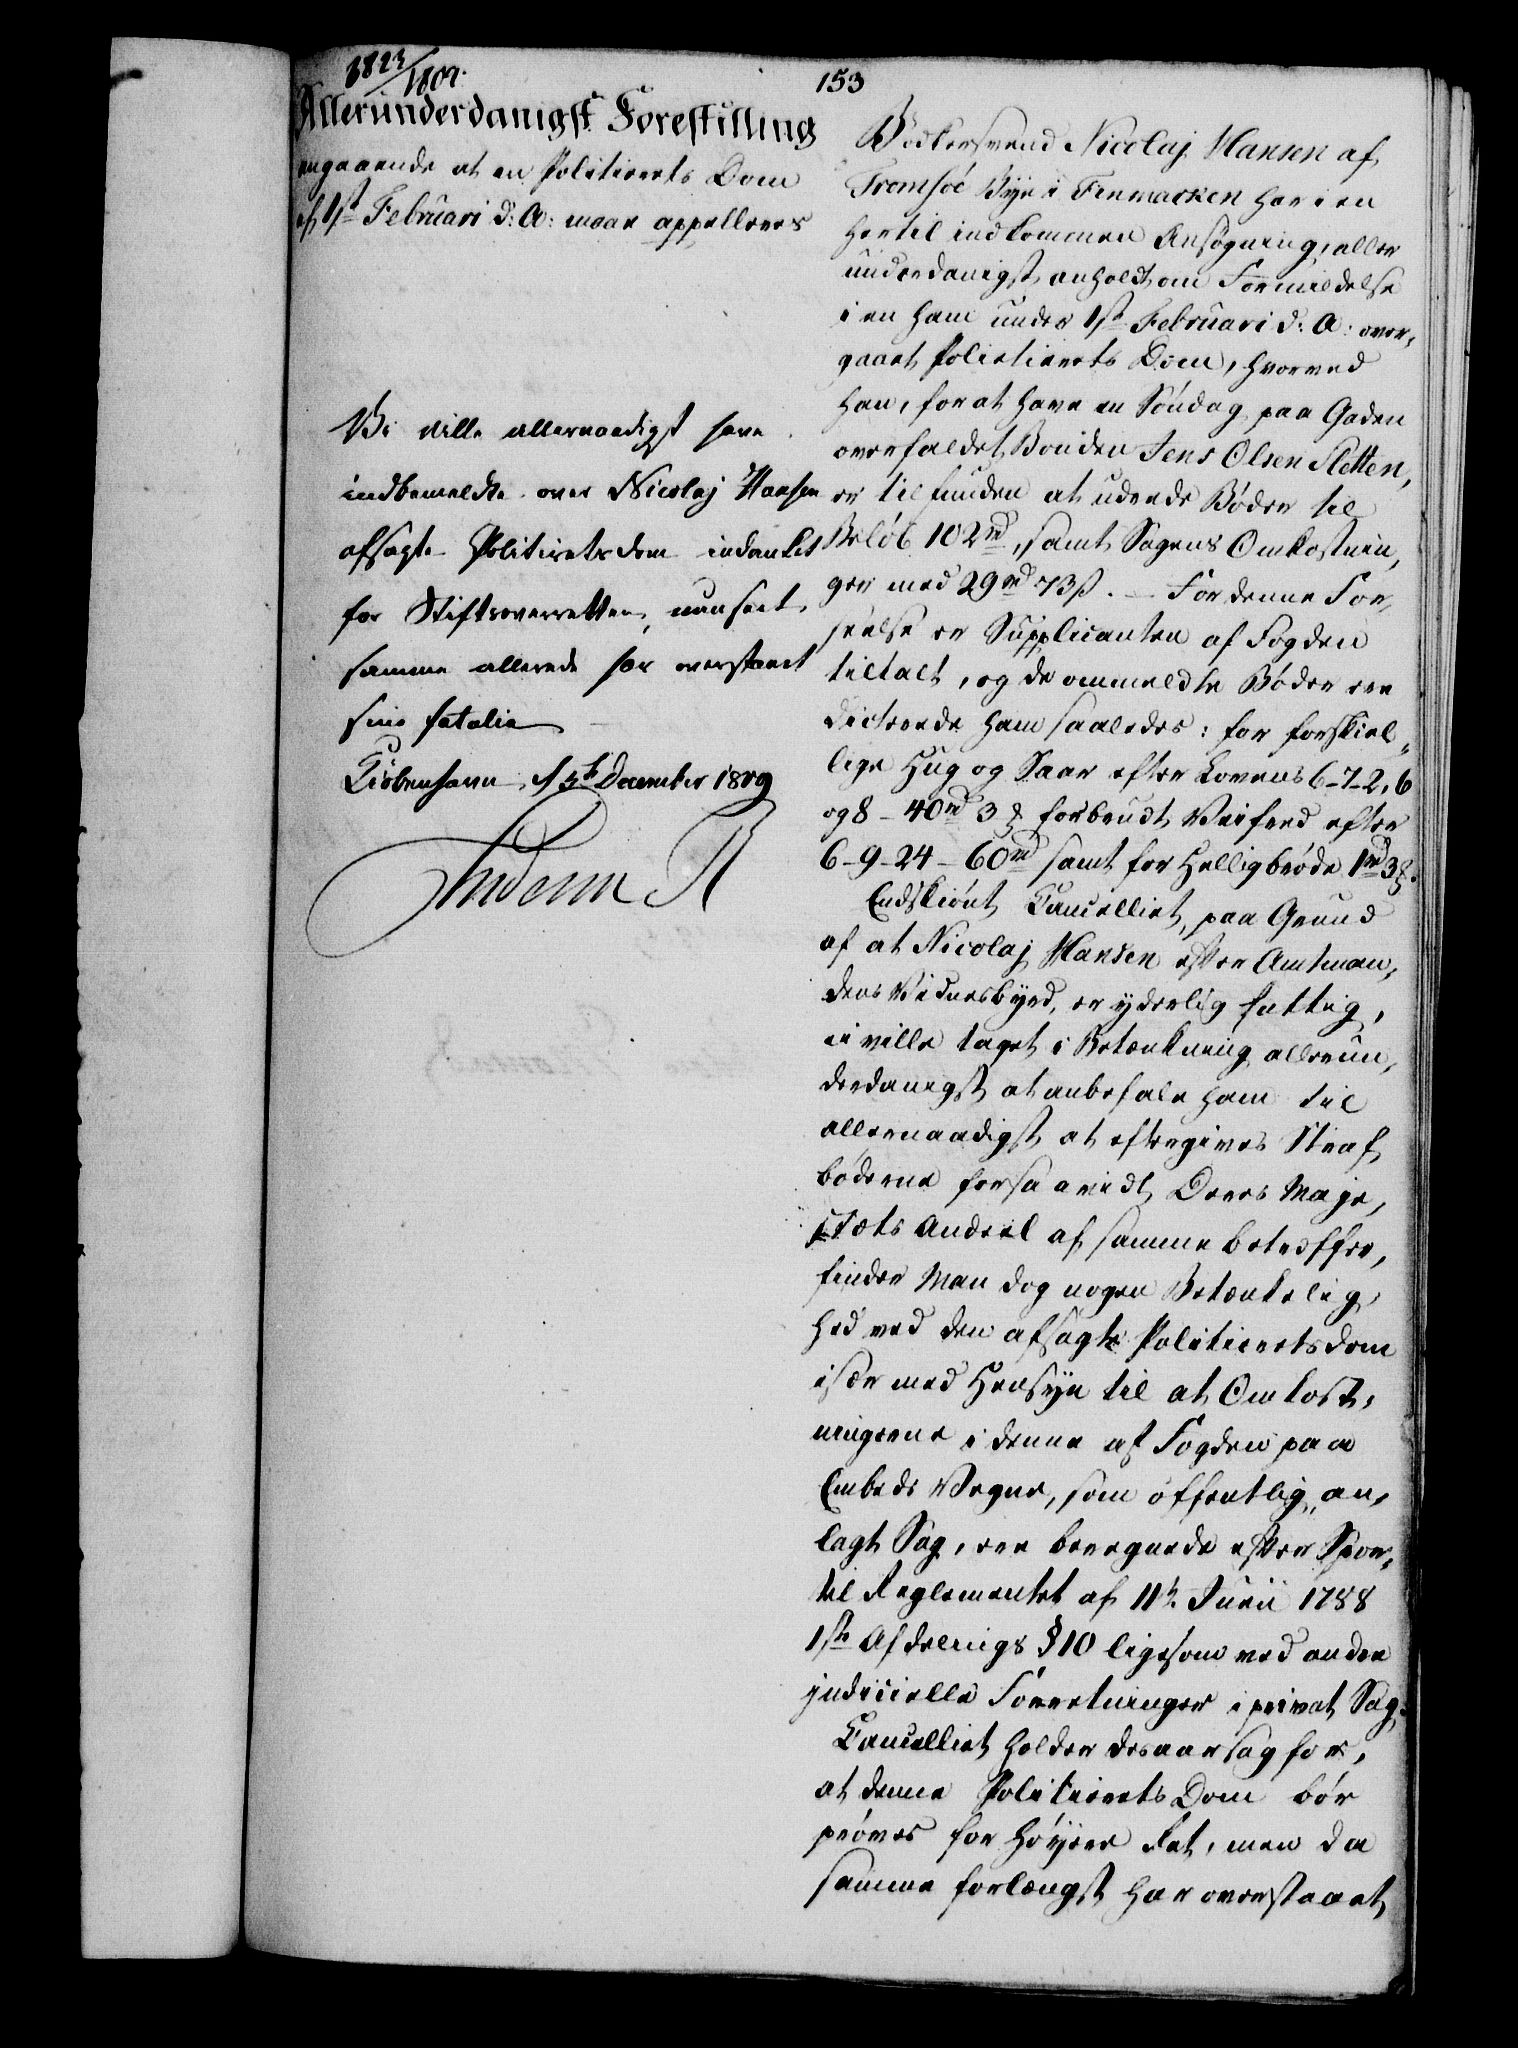 3823/1809.
153
Allerunderdanigst Forestilling
angaaende at en Politierets Dom
af 1ste Februari d: A: maae appelleres
Vi ville allernaadigst have
indbemeldte over Nicolaj Hansen
afsagte Politieretsdom indanket
for Stiftsoverretten, uanseet
samme allerede har overstaaet
sine fatalia
Kiøbenhavn, d 5te December 1809
Friderich R
Bødkersvend Nicolaj Hansen af
Tromsöe Bye i Finmarken har i en
hertil indkommen Ansøgning, aller
underdanigst anholdt om Formildelse
i en ham under 1ste Februari d: A: over,
gaaet Politierets Dom, hvorved
han, for at have en Söndag paa Gaden
overfaldet Bonden Jens Olsen Sletten,
er tilfunden at udrede Bøder til
Beløb 102 rd, samt Sagens Omkostnin,
ger med 29 rd 73 ß. – For denne For,
seelse er Supplicanten af Fogden
tiltalt, og de ommeldte Bøder ere
dicterede ham saaledes: for forskiel„
lige Hug og Saar efter Lovens 6-7-2, 6
og 8 – 40 rd 3 ℥ forbrudt Veifred efter
6-9-24 – 60 rd samt for Helligbrøde 1 rd 3 ℥.
Endskiönt Cancelliet, paa Grund
af at Nicolaj Hansen efter Amtman,
dens Vidnesbyrd, er yderlig fattig,
ei ville taget i Betænkning allerun,
derdanigst at anbefale ham til
allernaadigst at eftergives Straf
böderne forsaavidt Deres Maje,
stæts Andeel af samme betræffer,
finder Man dog nogen Betænkelig,
hed ved den afsagte Politieretsdom
især med Hensyn til at Omkost,
ningerne i denne af Fogden paa
Embeds Vegne, som offentlig, an,
lagt Sag, ere beregnede efter Spor,
tel Reglementet af 11te Junii 1788
1ste Afdelings § 10 ligesom ved andre
judicielle Forretninger i privat Sag.
Cancelliet holder desaarsag for,
at denne Politierets Dom bör
pröves for Höyere Ret, men da
samme forlængst har overstaaet